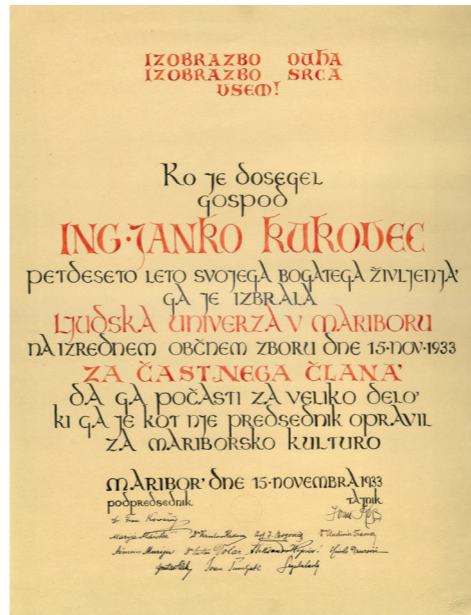 IZOBRAZBO DUHA
IZOBRAZBO SRCA
VSEM!
Ko je dosegel
gospod
ING·JANKO KUKOVEC
petdeseto leto svojega bogatega življenja
ga je izbrala
LJUDSKA UNIVERZA V MARIBORU
na izrednem občnem zboru dne 15·nov·1933
ZA ČASTNEGA ČLANA
da ga počasti za veliko delo
ki ga je kot nje predsednik opravil
za mariborsko kulturo
Maribor dne 15·novembra 1933
podpredsednik tajnik